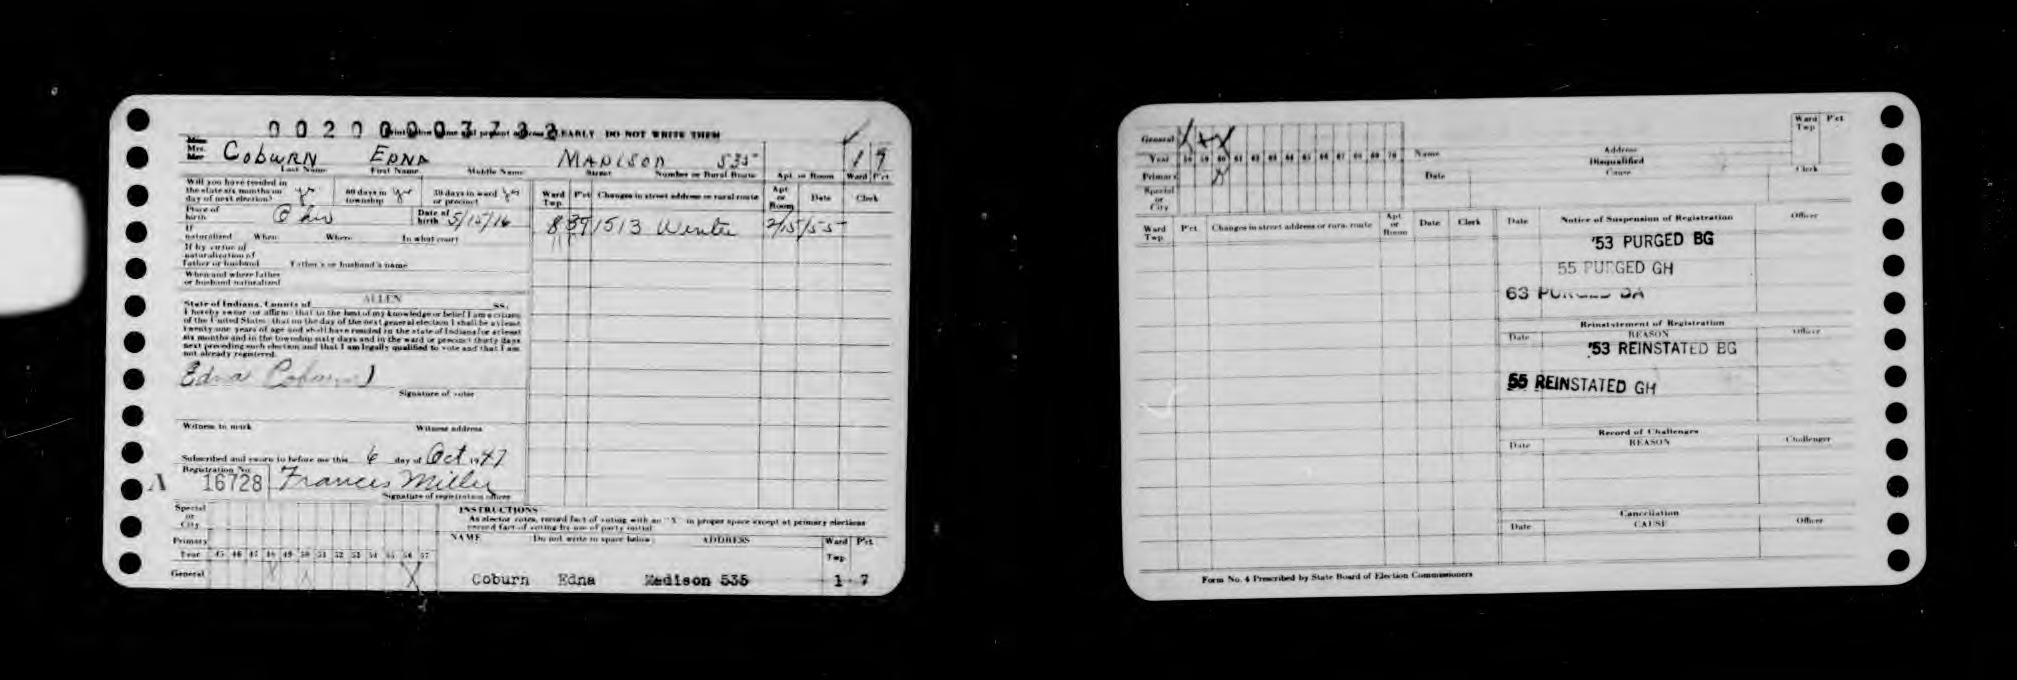 Mrs. COBURN EDNA MADISON 535 1 7
Last Name First Name Middle Name Street Number or Rural Route Apt. or Room Ward P'ct
DO NOT WRITE THEM
Will you have resided in
the state six months on
day of next election? yes 60 days in township yes 30 days in ward or precinct yes
Place of birth Ohio Date of birth 5/15/16
If naturalized When Where In what court
If by virtue of
naturalization of
Father or husband Father's or husband's name
When and where father
or husband naturalized
State of Indiana, County of ALLEN ss.
I hereby swear or affirm that to the best of my knowledge or belief I am a citizen
of the United States; that on the day of the next general election I shall be at least
twenty-one years of age and shall have resided in the state of Indiana for at least
six months and in the township sixty days and in the ward or precinct thirty days
next preceding such election and that I am legally qualified to vote and that I am
not already registered.
Edna Coburn
Signature of voter
Witness to mark Witness address
Subscribed and sworn to before me this 6 day of Oct 1947
Registration No.
A 16728 Frances Miller
Signature of registration officer
Ward Twp. P'ct Changes in street address or rural route Apt or Room Date Clerk
8 39 1513 Winter 2/15/55
Special or City
Primary
Year 45 46 47 48 49 50 51 52 53 54 55 56 57
General X X
INSTRUCTIONS
As elector votes, record fact of voting with an "X" in proper space except at primary elections
record fact of voting by use of party initial
NAME Do not write in space below ADDRESS Ward Twp. P'ct
Coburn Edna Madison 535 1 7
General X X X
Year 58 59 60 61 62 63 64 65 66 67 68 69 70
Primary
Special or City
Name Address
Disqualified
Date Cause Clerk
Ward Twp P'ct
Ward Twp. P'ct Changes in street address or rural route Apt or Room Date Clerk
Date Notice of Suspension of Registration Officer
'53 PURGED BG
55 PURGED GH
63 PURGED
Reinstatement of Registration
Date REASON Officer
'53 REINSTATED BG
55 REINSTATED GH
Record of Challenges
Date REASON Challenger
Cancellation
Date CAUSE Officer
Form No. 4 Prescribed by State Board of Election Commissioners